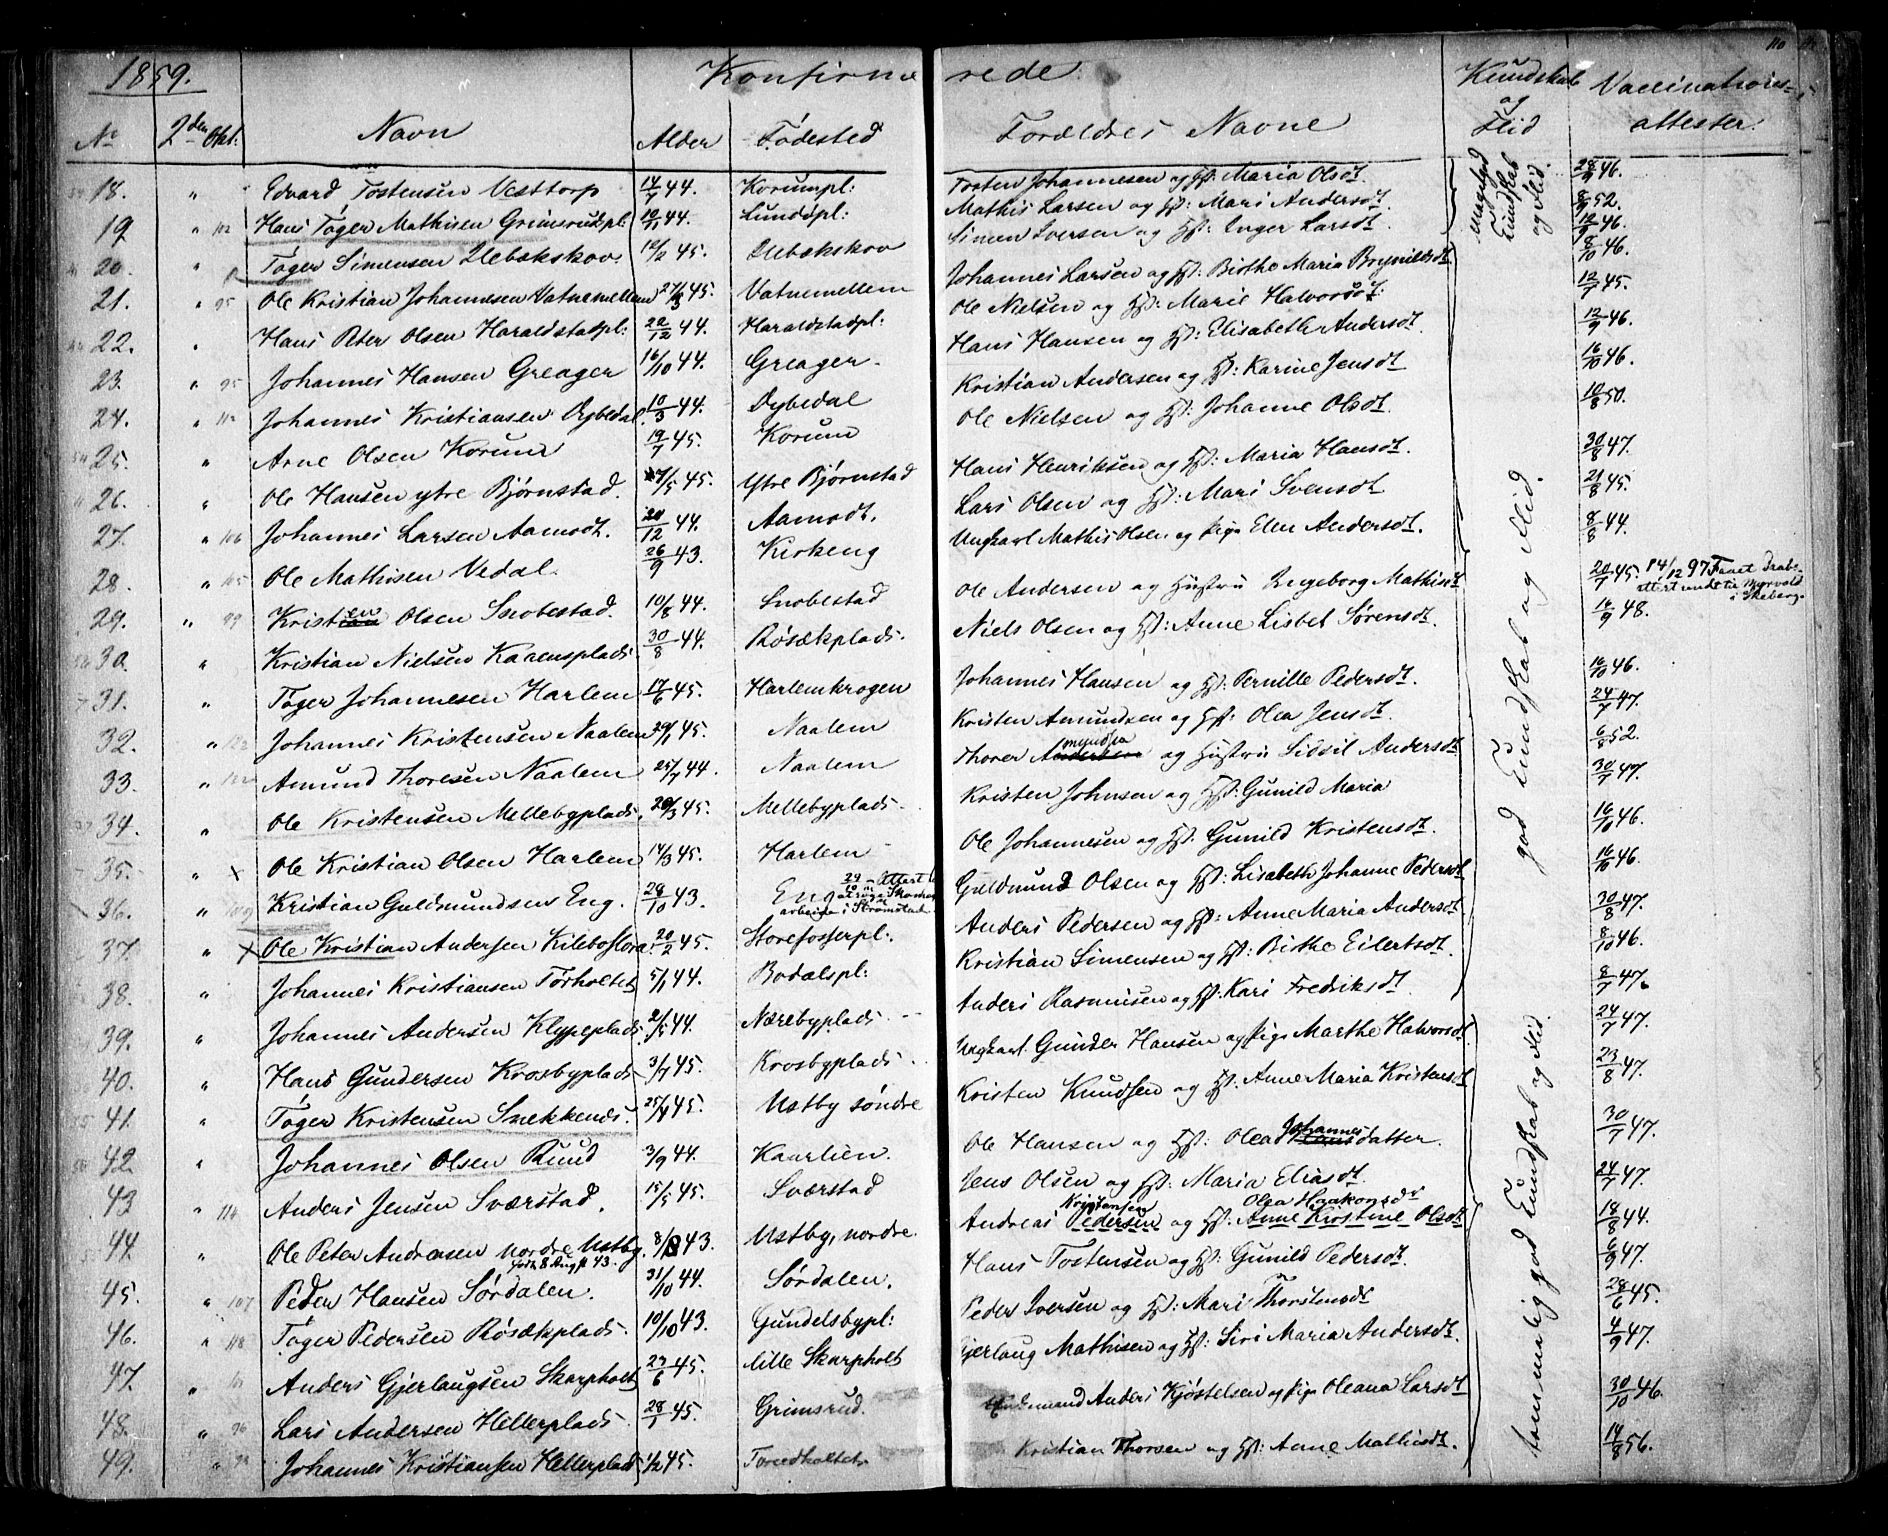 1859. Konfirmerede. 110
No 2den Okt: Navn Alder Fødested Forældres Navne Kundskab og Flid Vaccinations-attester.
18. " Edvard Tostensen Vesttorp 14/7 44. Korumpl: Tosten Johannesen og Hst: Maria Olsdt. 28/9 46.
19 " 102 Hans Tøger Mathisen Grimsrukpl: 10/11 44. Lundspl: Mathis Larsen og Hst: Mari Andersdt 8/9 52.
20. " Tøger Simensen Ulebækskov. 12/2 45. Ulebækskov Simen Iversen og Hst: Inger Larsdt. 12/9 46.
21. " 95 Ole Kristian Johannesen Vatnemellem 27/3 45. Vatnemellem Johannes Larsen og Hst: Birthe Maria Brynildsdt 8/10 46.
22. " Hans Peter Olsen Haraldstadpl: 22/12 44. Haraldstadpl: Ole Nielsen og Hst: Marie Halvorsdt: 12/7 45.
23. " 95 Johannes Hansen Greager 16/10 44. Greager. Hans Hansen og Hst: Elisabeth Andersdt. 12/9 46.
24. " 112 Johannes Kristiansen Dybedal. 10/3 44. Dybedal Kristian Andersen og Hst: Karine Jensdt 16/10 46.
25. " Arne Olsen Korum 19/7 45. Korum Ole Nielsen og Hst: Johanne Olsdt 10/8 50.
26. " Ole Hansen ytre Bjørnstad. 7/5 45. Ytre Bjørnstad Hans Henriksen og Hst: Maria Hansdt. 30/8 47.
27. " 106 Johannes Larsen Aamodt. 20/12 44. Aamodt. Lars Olsen og Hst: Mari Svensdt 21/8 45.
28. " 105 Ole Mathisen Vedal. 26/9 43. Kirkeng Ungkarl Mathis Olsen og Pige Elen Andersdt. 8/8 44.
29. " 99 Kristen Olsen Snobestad. 10/8 44. Snobestad Ole Andersen og Hustru Ingeborg Mathisdt 20/7 45. 14/12 97
30. " Kristian Nielsen Karensplads. 30/8 44. Røsækplads. Niels Olsen og Hst: Anne Lisbet Sørensdt. 16/9 48.
31. " Tøger Johannesen Harlem 17/6 45. Harlemkrogen Johannes Hansen og Hst: Pernille Pedersdt. 16/10 46.
32. " 122 Johannes Kristensen Naalem 29/1 45. Naalem Kristen Amundsen og Hst: Olea Jensdt. 24/7 47.
33. " 122 Amund Thoresen Naalem 25/7 44. Naalem Thorer Amundsen og Hustru Sidsil Andersdt 6/8 52.
34. " Ole Kristensen Mellebyplads. 20/3 45. Mellebyplads. Kristen Johnsen og Hst: Gunild Maria 30/7 47.
35. " x Ole Kristian Olsen Harlem 14/3 45. Harlem Ole Johannesen og Hst: Gunild Kristensdt. 16/10 46.
36. " 109 Kristian Guldmundsen Eng. 29/10 43. Eng Guldmund Olsen og Hst: Lisabeth Johanne Pedersdt 16/10 46.
arbeide i Strømstad
37. " x Ole Kristian Andersen Kileboslora. 20/2 45. Storefosserpl: Anders Pedersen og Hst: Anne Maria Andersdt 30/8 47.
38. " Johannes Kristiansen Torholtet 5/1 44. Bodalspl: Kristian Simensen og Hst: Birthe Eilertsdt. 8/10 46.
39. " Johannes Andersen Klypeplads. 2/5 44. Nærebyplads. Anders Rasmusen og Hst. Kari Fredriksdt. 8/7 47.
40. " Hans Gundersen Krosbyplads 3/7 45. Krosbyplads. Ungkarl. Gunder Hansen og Pige Marthe Halvorsdt. 24/7 47.
41. " Tøger Kristensen Snekkenes. 25/4 45. Ustby søndre Kristen Knudsen og Hst: Anne Maria Kristensdt 23/8 47.
42 " Johannes Olsen Ruud 3/9 44. Kaarlien. Ole Hansen og Hst: Olea Johannesdatter. 30/7 47.
43 " 114 Anders Jensen Sværstad. 15/5 45. Sværstad Jens Olsen og Hst: Maria Eliasdt. 24/7 47.
44. " Ole Peter Andreasen nordre Ustby. 8/8 43. Ustby, nordre. Andreas Pedersen Kristansen og Hst: Anne Kirstine Olsdt Olea Haakonsdt 18/8 44.
født 8 Augst 43.
45. " 107 Peder Hansen Sørdalen. 31/10 44. Sørdalen. Hans Tostensen og Hst: Gunild Pedersdt. 6/9 47.
46. " 118 Tøger Pedersen Røsækplads. 10/10 43. Gundelsbypl: Peder Iversen og Hst: Mari Thorstensdt 28/6 45.
47. " Anders Gjerlaugsen Skarpholt 23/6 45. lille Skarpholt Gjerlaug Mathisen og Hst: Siri Maria Andersdt. 4/9 47.
48. " 96 Lars Andersen Hellerplads. 28/1 45. Grimsrud. Anders Kjøstelsen og Pige Oleana Larsdt 30/10 46.
49. " Johannes Kristiansen Hellerplads. 1/2 45. Kristian Thorsen og Hst: Anne Mathisdt. 14/8 56.
maadelig Kundskab og Flid.
god Kundskab og Flid.
temmelig god Kundskab og Flid.